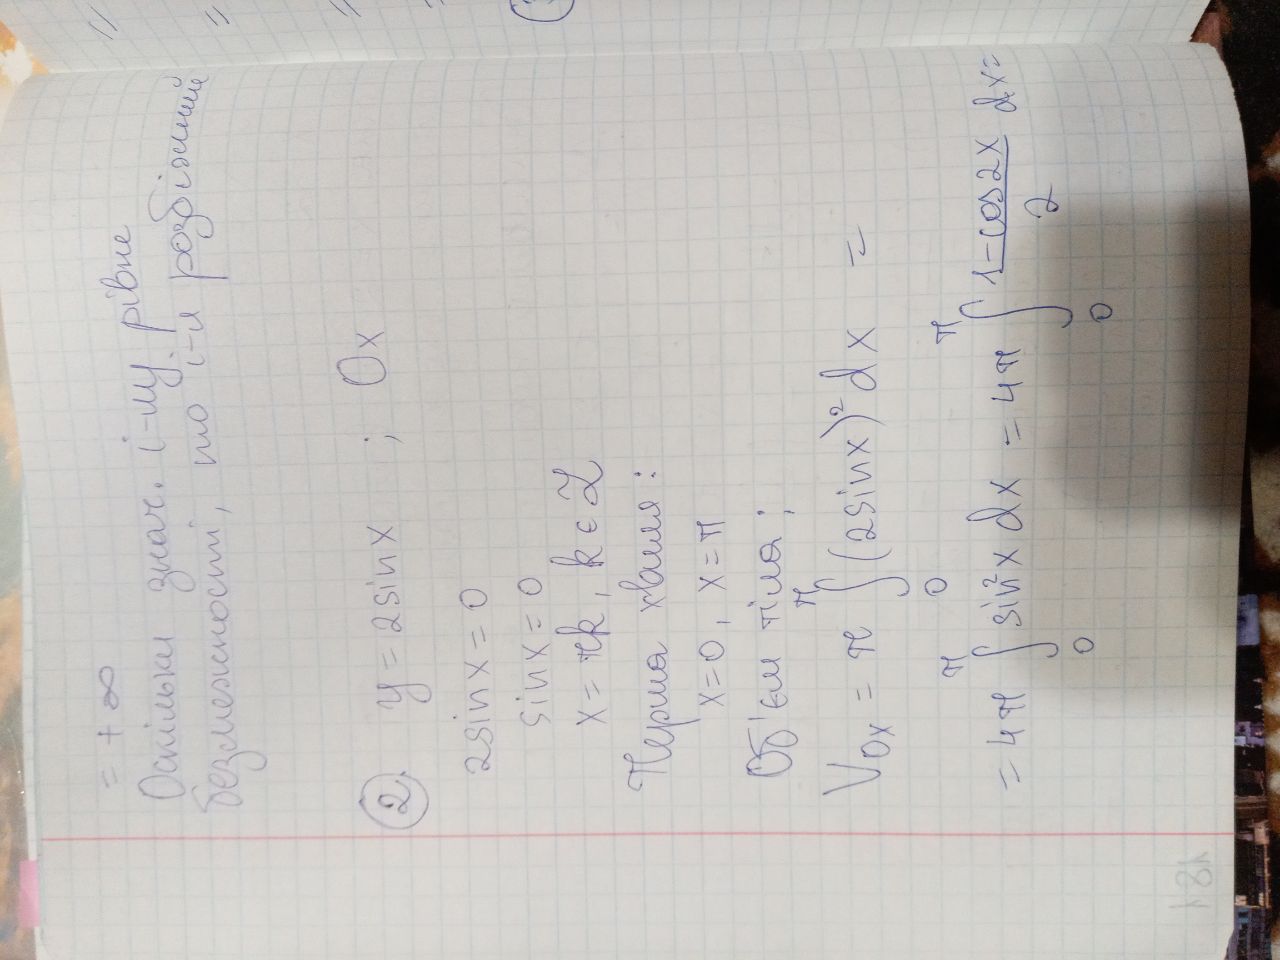 = + ∞
Оскільки знач. і-лу рівне
безмежності, то і-л розбіжний
2. y = 2sinx ; Ox
2sinx = 0
sinx = 0
x = πk, k є Z
Перша хвиля:
x=0, x=π
Об'єм тіла;
V_Ox = π ∫₀^π (2sinx)² dx =
= 4π ∫₀^π sin²x dx = 4π ∫₀^π (1-cos2x)/2 dx =